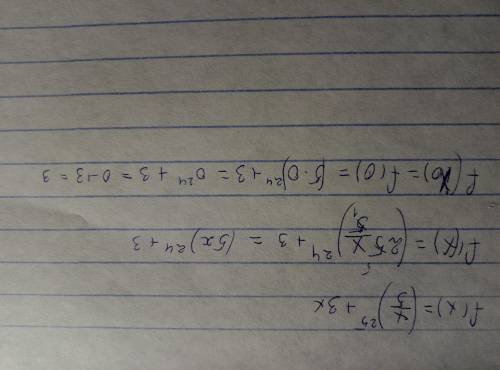 f(x) = (x/5)^25 + 3x
f'(x) = (25 x/5)^24 + 3 = (5x)^24 + 3
f'(0) = (5·0)^24 + 3 = 0^24 + 3 = 0 + 3 = 3